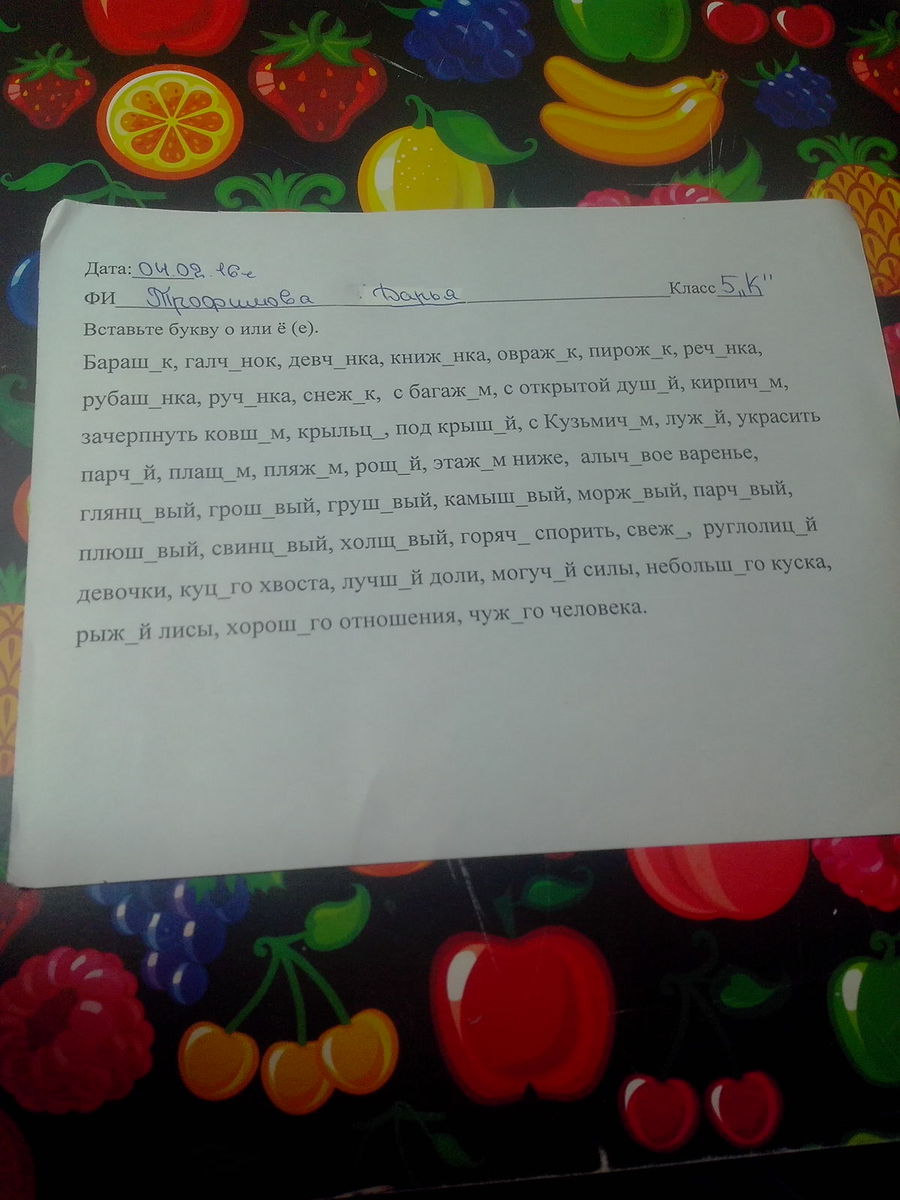 Дата: 04.02.16г
ФИ Трофимова Дарья Класс 5„К"
Вставьте букву о или ё (е).
Бараш_к, галч_нок, девч_нка, книж_нка, овраж_к, пирож_к, реч_нка,
рубаш_нка, руч_нка, снеж_к, с багаж_м, с открытой душ_й, кирпич_м,
зачерпнуть ковш_м, крыльц_, под крыш_й, с Кузьмич_м, луж_й, украсить
парч_й, плащ_м, пляж_м, рощ_й, этаж_м ниже, алыч_вое варенье,
глянц_вый, грош_вый, груш_вый, камыш_вый, морж_вый, парч_вый,
плюш_вый, свинц_вый, холщ_вый, горяч_ спорить, свеж_, руглолиц_й
девочки, куц_го хвоста, лучш_й доли, могуч_й силы, небольш_го куска,
рыж_й лисы, хорош_го отношения, чуж_го человека.